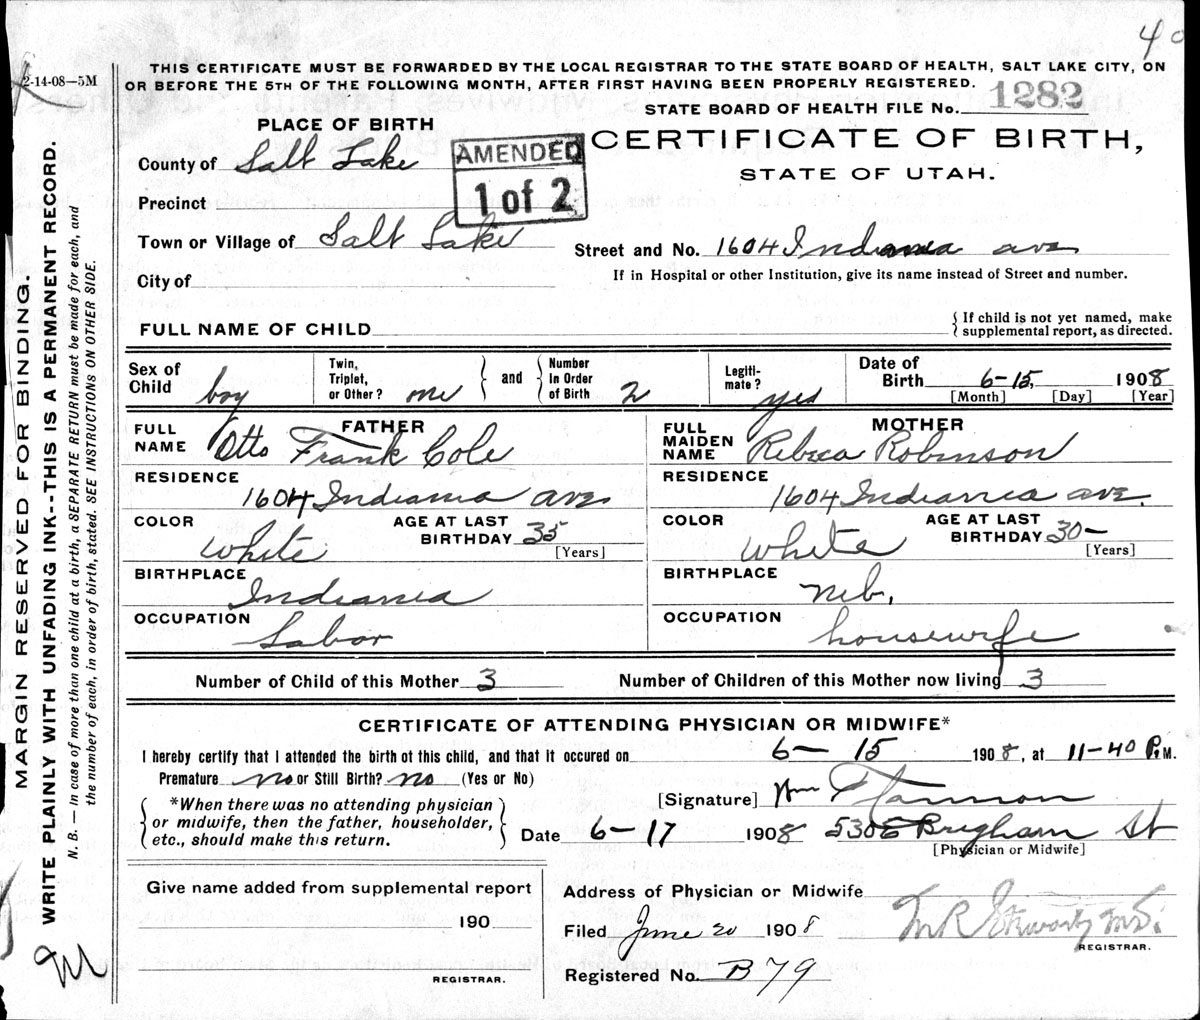 40
2-14-08—5M
THIS CERTIFICATE MUST BE FORWARDED BY THE LOCAL REGISTRAR TO THE STATE BOARD OF HEALTH, SALT LAKE CITY, ON
OR BEFORE THE 5TH OF THE FOLLOWING MONTH, AFTER FIRST HAVING BEEN PROPERLY REGISTERED.
STATE BOARD OF HEALTH FILE No. 1282
PLACE OF BIRTH
CERTIFICATE OF BIRTH,
STATE OF UTAH.
AMENDED
1 of 2
County of Salt Lake
Precinct
Town or Village of Salt Lake
Street and No. 1604 Indiana ave
City of
If in Hospital or other Institution, give its name instead of Street and number.
FULL NAME OF CHILD
{ If child is not yet named, make
{ supplemental report, as directed.
Sex of Child boy
Twin, Triplet, or Other? one } and { Number in Order of Birth 2
Legiti-mate? yes
Date of Birth 6-15, 1908
[Month] [Day] [Year]
FATHER
FULL NAME Otto Frank Cole
MOTHER
FULL MAIDEN NAME Rebeca Robinson
RESIDENCE
1604 Indiania ave
RESIDENCE
1604 Indiania ave.
COLOR White
AGE AT LAST BIRTHDAY 35
[Years]
COLOR White
AGE AT LAST BIRTHDAY 30—
[Years]
BIRTHPLACE
Indiania
BIRTHPLACE
Neb.
OCCUPATION
Labor
OCCUPATION
housewife
Number of Child of this Mother 3
Number of Children of this Mother now living 3
CERTIFICATE OF ATTENDING PHYSICIAN OR MIDWIFE*
I hereby certify that I attended the birth of this child, and that it occured on 6— 15 1908, at 11-40 P.M.
Premature no or Still Birth? no (Yes or No)
{ *When there was no attending physician
or midwife, then the father, householder,
etc., should make this return. }
[Signature] Wm
Date 6-17 1908 530 E Brigham St
[Physician or Midwife]
Give name added from supplemental report
190
REGISTRAR.
Address of Physician or Midwife
Filed June 20 1908
M.D.
REGISTRAR.
Registered No. B79
MARGIN RESERVED FOR BINDING.
WRITE PLAINLY WITH UNFADING INK--THIS IS A PERMANENT RECORD.
N. B. — In case of more than one child at a birth, a SEPARATE RETURN must be made for each, and
the number of each, in order of birth, stated. SEE INSTRUCTIONS ON OTHER SIDE.